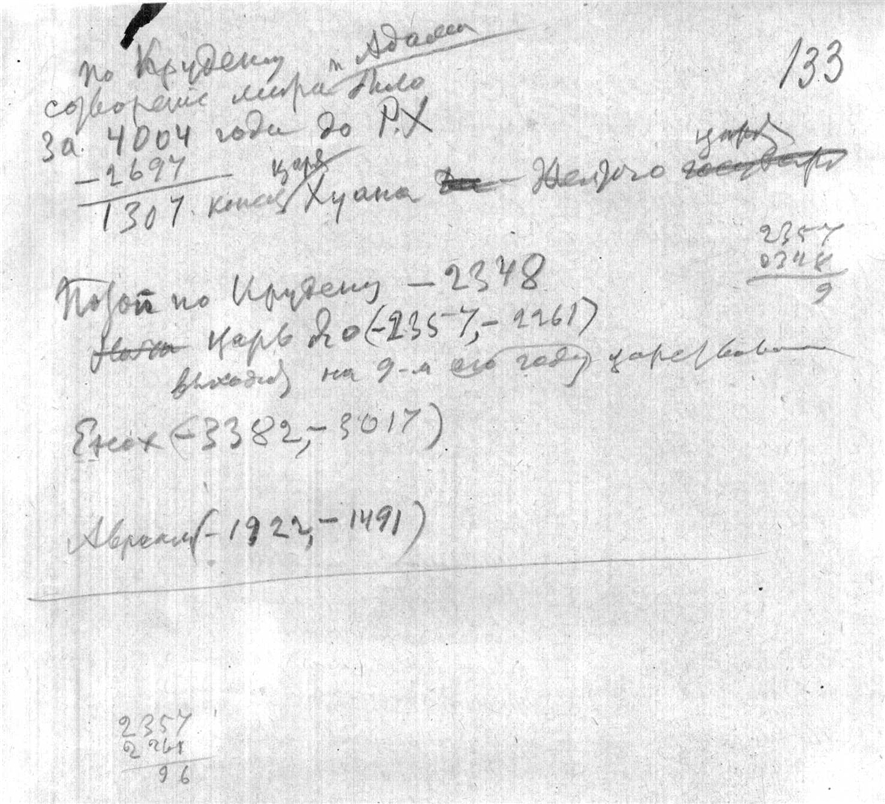 133
по Крудену и Адама
сотворение мира было
За 4004 года до Р.Х
царя царя
-2697
1307. конец Хуана - Желтого государя
2357
Потоп по Крудену -2348
0348
9
Ноха царь Яо (-2357, -2261)
выходит на 9-м его году царствования
Енох (-3382, -3017)
Авраам (-1922, -1491)
2357
2261
96